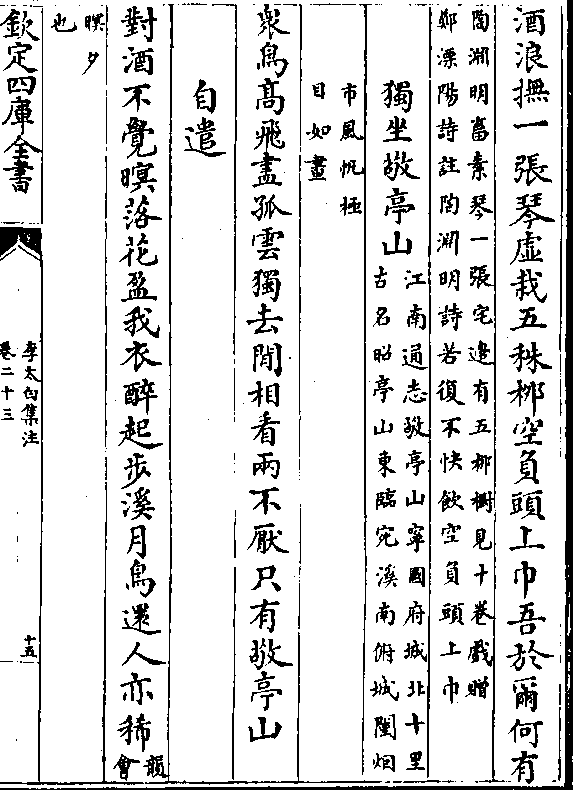 酒浪撫一張琴虛栽五株栁空負頭上巾吾於爾何有
陶淵明畜素琴一張宅邊有五栁樹見十卷戲贈
鄭溧陽詩註陶淵明詩若復不快飲空負頭上巾
獨坐敬亭山
江南通志敬亭山寧國府城北十里
古名昭亭山東臨宛溪南俯城闉烟
市風帆極
目如畫
衆鳥髙飛盡孤雲獨去閒相看兩不厭只有敬亭山
自遣
對酒不覺暝落花盈我衣醉起步溪月鳥還人亦稀
韻
會
暝夕
也
欽定四庫全書
李太白集注
卷二十三
十五